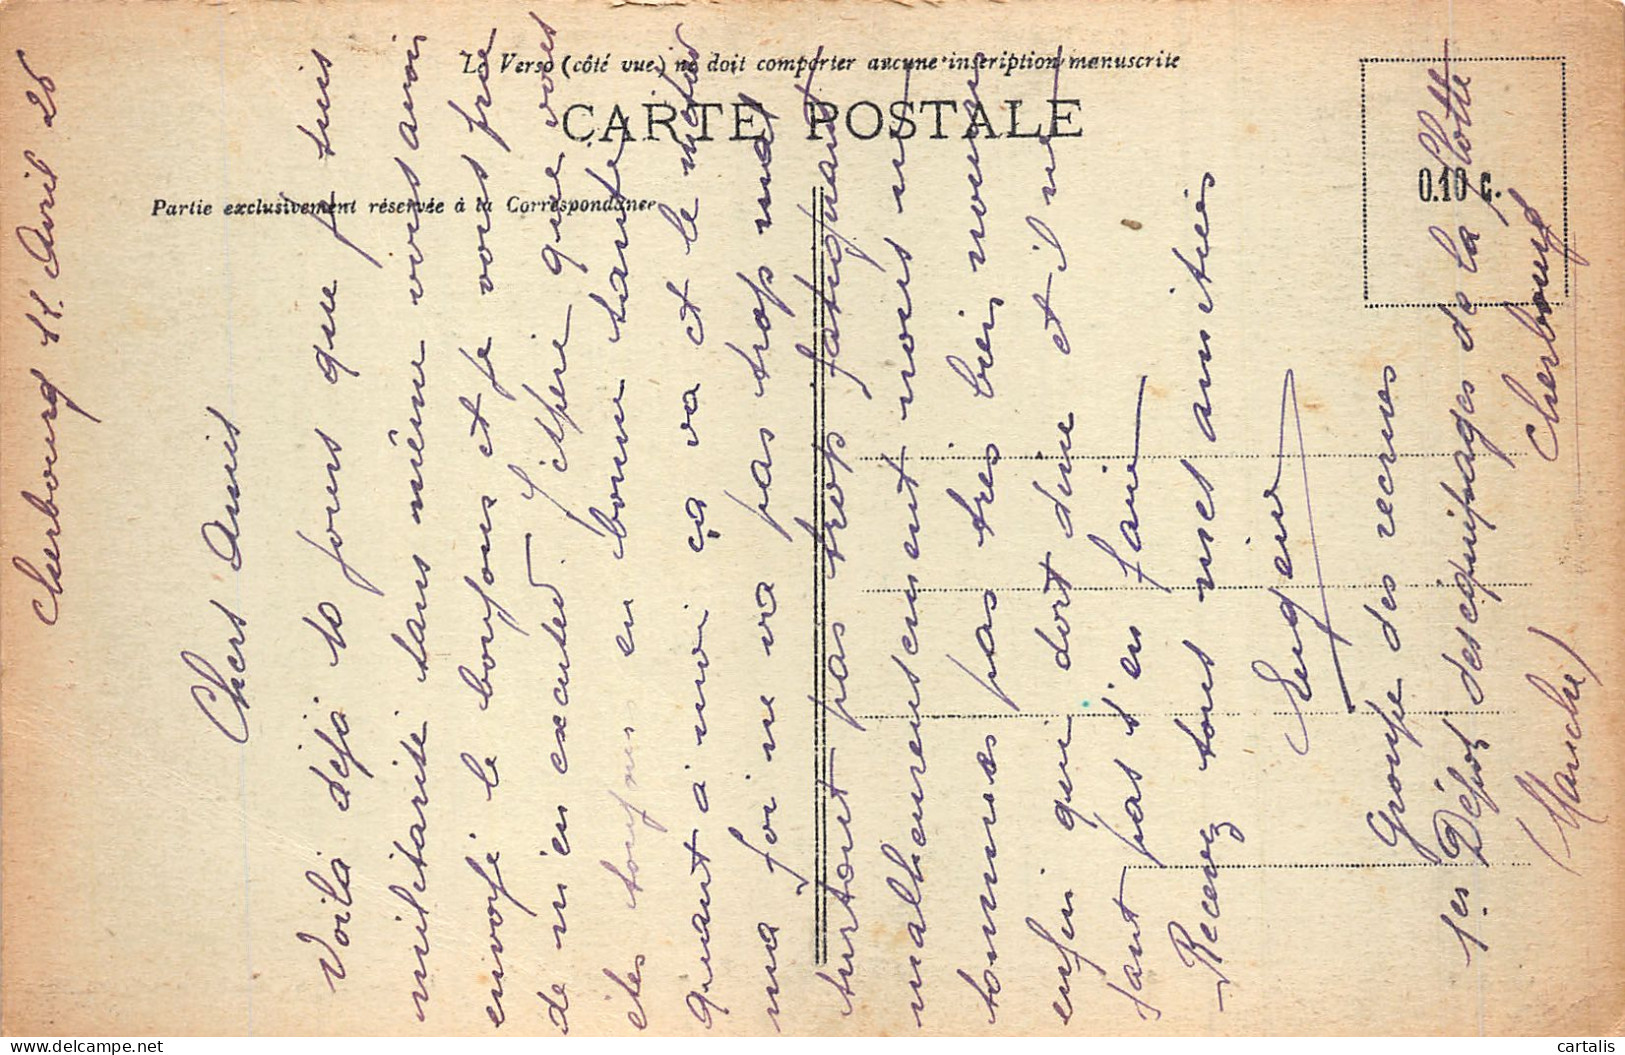 Le Verso (côté vue) ne doit comporter aucune inscription manuscrite
CARTE POSTALE
Partie exclusivement réservée à la Correspondance
0.10 c.
Cherbourg 11 Avril 26
Chers Amis
Voila déja 10 jours que je suis
militarisé sans même vous avoir
envoyé le bonjour et je vous prie
de m'en excuser. J'espère que vous
êtes toujours en bonne santé
quant à moi ça va et le métier
ma foi ne va pas trop mal
surtout pas trop fatiguant
malheureusement nous ne
sommes pas très bien nourri
enfin qui dort dine et il ne
faut pas s'en faire
Recevez tous mes amitiés
Eugène
Groupe des recrues
1er Dépot des équipages de la flotte
Cherbourg
(Manche)
cartalis